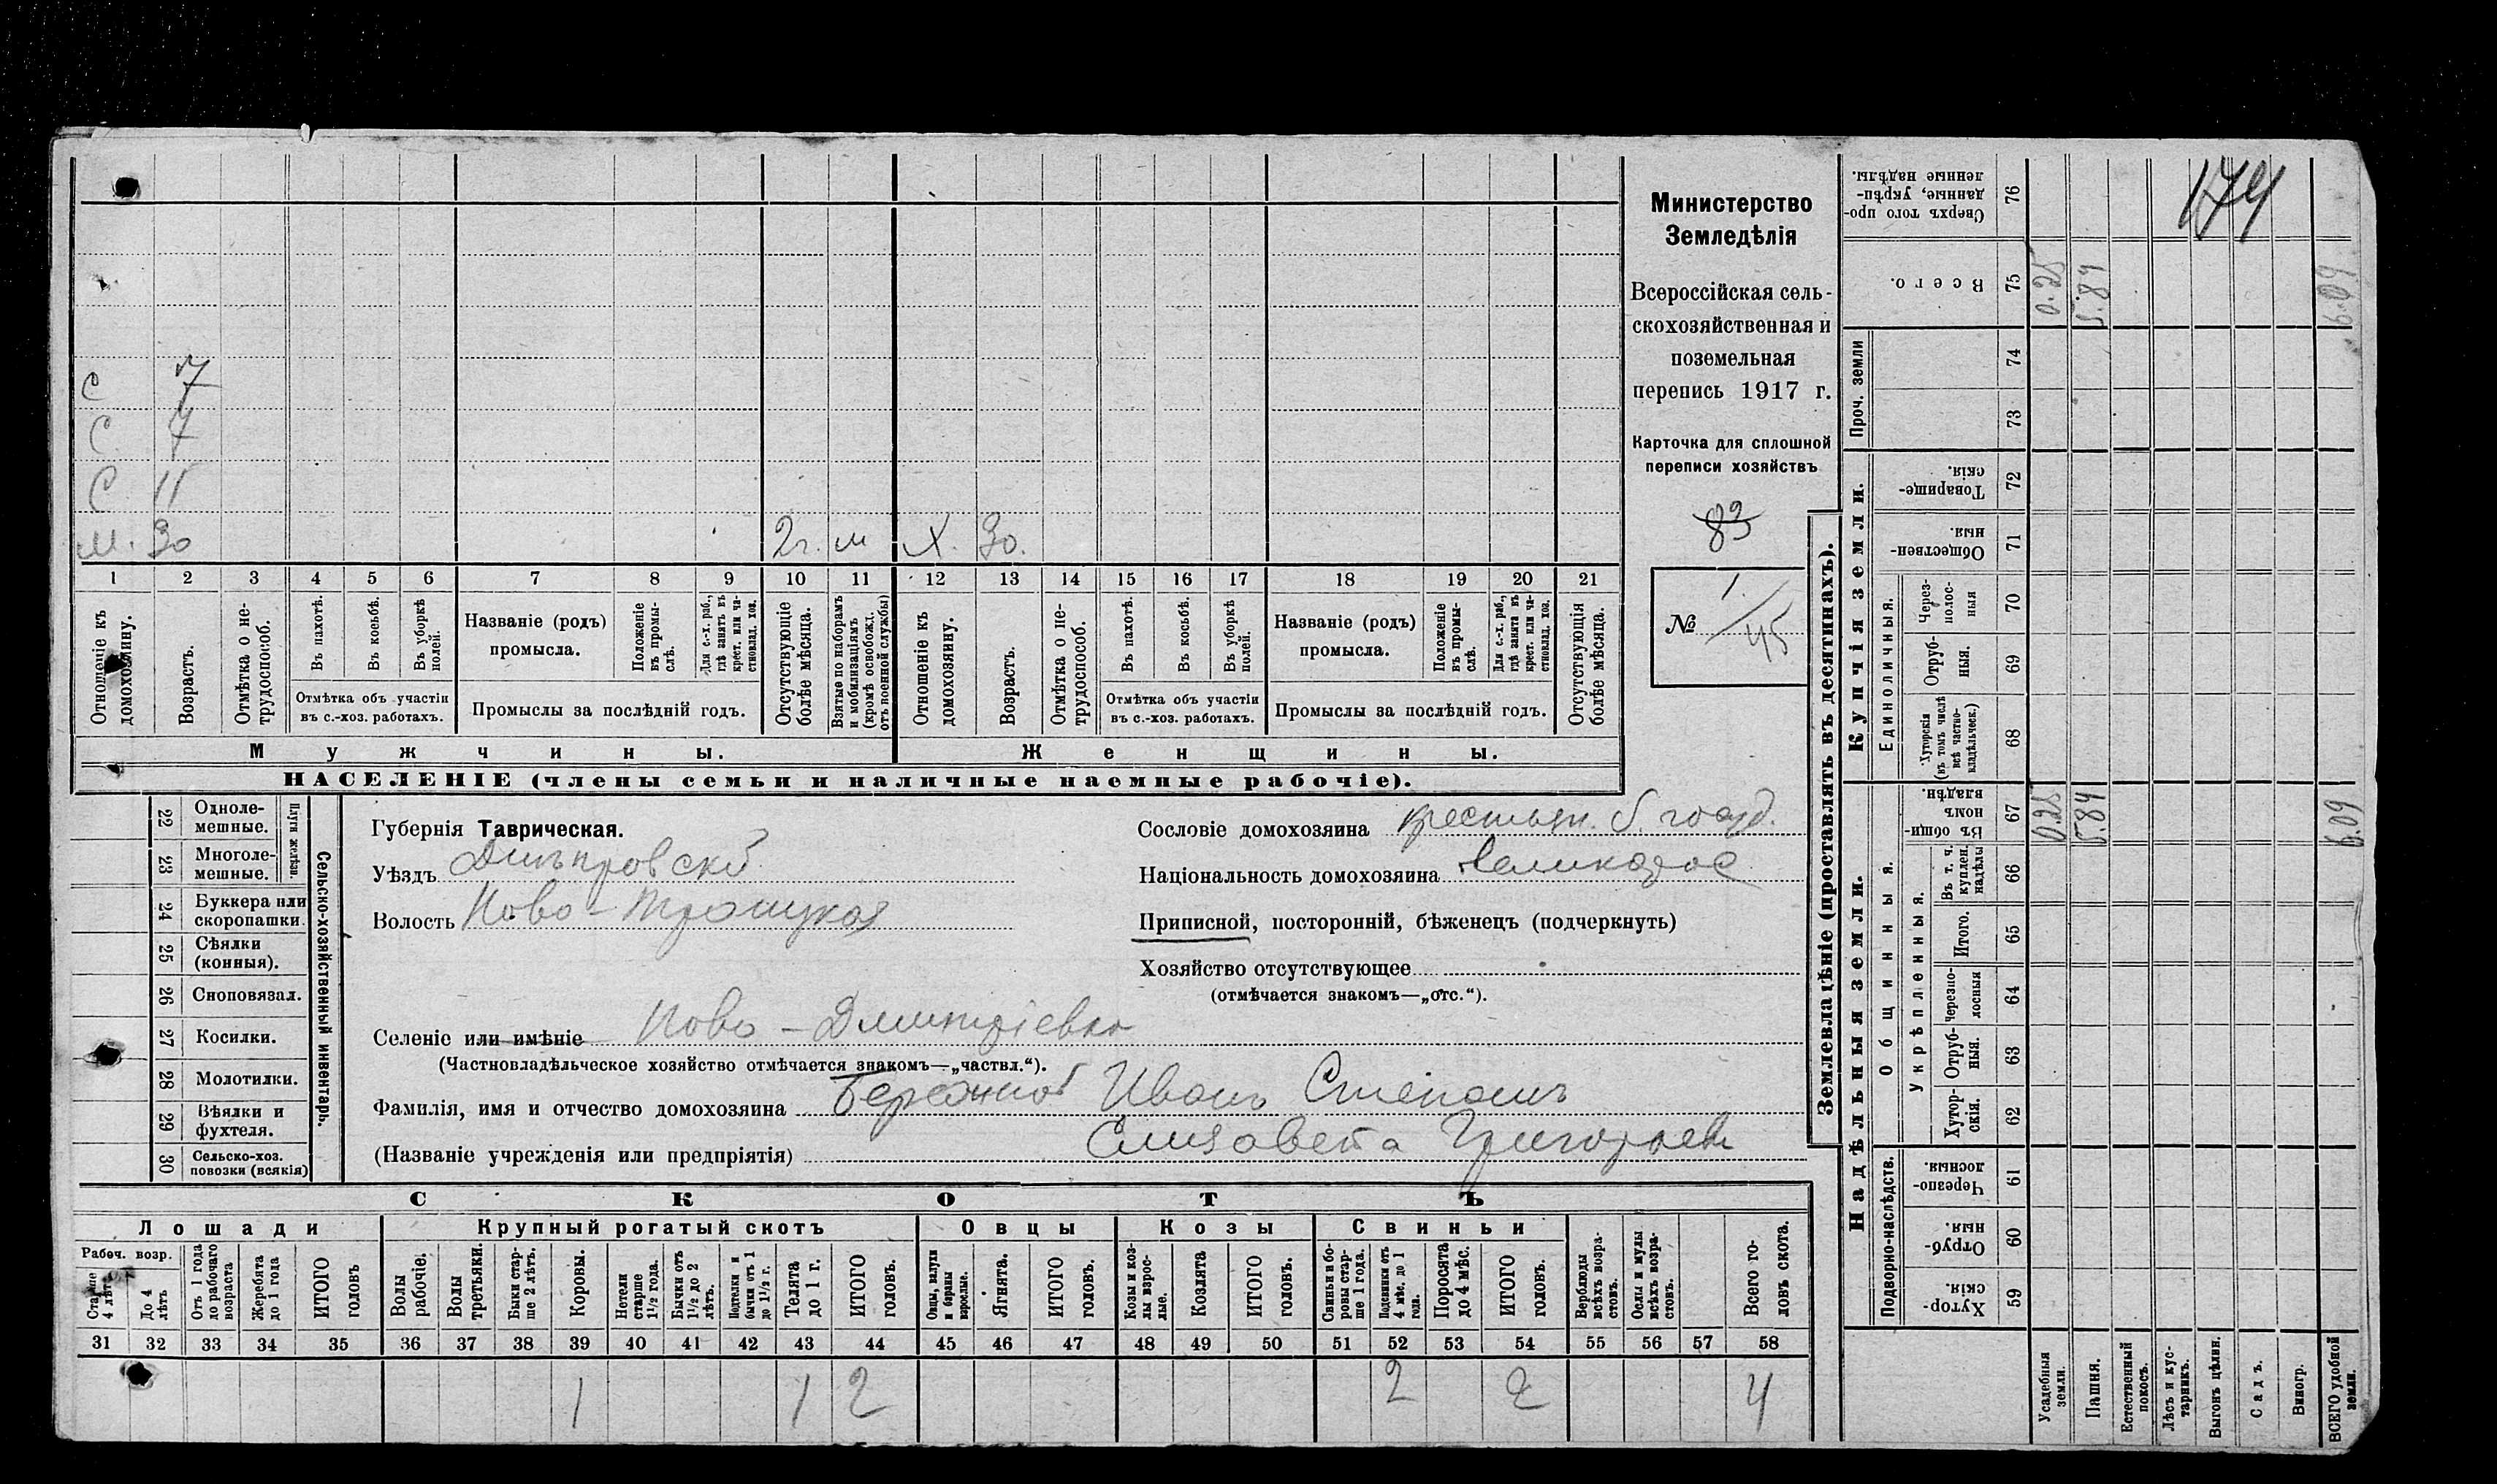 174
Министерство
Земледѣлія
Всероссійская сель-
скохозяйственная и
поземельная
перепись 1917 г.
Карточка для сплошной
переписи хозяйствъ
83
№ 1/45
С 7
С. 7
С. 11
М. 30 2г. м Х. 30.
1 2 3 4 5 6 7 8 9 10 11 12 13 14 15 16 17 18 19 20 21
Отношеніе къ домохозяину.
Возрастъ.
Отмѣтка о не-трудоспособ.
Въ пахотѣ.
Въ косьбѣ.
Въ уборкѣ полей.
Отмѣтка объ участіи
въ с.-хоз. работахъ.
Названіе (родъ)
промысла.
Положеніе въ промы-слѣ.
Для с.-х. раб., гдѣ занятъ въ крест. или ча-стновлад. хоз.
Промыслы за послѣдній годъ.
Отсутствующіе болѣе мѣсяца.
Взятые по наборамъ и мобилизаціямъ (кромѣ освобожд. отъ военной службы)
Отношеніе къ домохозяину.
Возрастъ.
Отмѣтка о не-трудоспособ.
Въ пахотѣ.
Въ косьбѣ.
Въ уборкѣ полей.
Отмѣтка объ участіи
въ с.-хоз. работахъ.
Названіе (родъ)
промысла.
Положеніе въ промы-слѣ.
Для с.-х. раб., гдѣ занята въ крест. или ча-стновлад. хоз.
Промыслы за послѣдній годъ.
Отсутствующія болѣе мѣсяца.
Мужчины.
Женщины.
НАСЕЛЕНІЕ (члены семьи и наличные наемные рабочіе).
22 Одноле-мешные.
23 Многоле-мешные.
Плуги желѣзн.
24 Буккера или скоропашки.
25 Сѣялки (конныя).
26 Сноповязал.
27 Косилки.
28 Молотилки.
29 Вѣялки и фухтеля.
30 Сельско-хоз. повозки (всякія)
Сельско-хозяйственный инвентарь.
Губернія Таврическая.
Уѣздъ Днѣпровскій
Волость Ново-Троицкая
Сословіе домохозяина крестьян. б. госуд.
Національность домохозяина великорос
Приписной, посторонній, бѣженецъ (подчеркнуть)
Хозяйство отсутствующее
(отмѣчается знакомъ—„отс.“).
Селеніе или имѣніе Ново-Дмитріевка
(Частновладѣльческое хозяйство отмѣчается знакомъ—„частвл.“).
Фамилія, имя и отчество домохозяина Бережной Иванъ Степанъ
Елизавета Григорьев
(Названіе учрежденія или предпріятія)
СКОТЪ
Лошади
Крупный рогатый скотъ
Овцы
Козы
Свиньи
Рабоч. возр.
Старше 4 лѣтъ
До 4 лѣтъ
Отъ 1 года до рабочаго возраста
Жеребята до 1 года
ИТОГО головъ
Волы рабочіе.
Волы третьяки.
Быки стар-ше 2 лѣтъ.
Коровы.
Нетели старше 1½ года.
Бычки отъ 1½ до 2 лѣтъ.
Подтелки и бычки отъ 1 до 1½ г.
Телята до 1 г.
ИТОГО головъ.
Овцы, валухи и бараны взрослые.
Ягнята.
ИТОГО головъ.
Козы и коз-лы взрос-лые.
Козлята
ИТОГО головъ.
Свиньи и бо-ровы стар-ше 1 года.
Подсвинки отъ 4 мѣс. до 1 года.
Поросята до 4 мѣс.
ИТОГО головъ.
Верблюды всѣхъ возра-стовъ.
Ослы и мулы всѣхъ возра-стовъ.
Всего го-ловъ скота.
31 32 33 34 35 36 37 38 39 40 41 42 43 44 45 46 47 48 49 50 51 52 53 54 55 56 57 58
1 1 2 2 2 4
Землевладѣніе (проставлять въ десятинахъ).
Надѣльныя земли.
Купчія земли.
Проч. земли
Подворно-наслѣдств.
Общинныя.
Укрѣпленныя.
Единоличныя.
Хутор-скія. 59
Отруб-ныя. 60
Черезпо-лосныя. 61
Хутор-скія. 62
Отруб-ныя. 63
Черезпо-лосныя 64
Итого. 65
Въ т. ч. куплен. надѣлы 66
Въ общин-номъ владѣн. 67 0.25 5.84 6.09
Хуторскія (въ томъ числѣ всѣ частно-владѣльческ.) 68
Отруб-ныя. 69
Через-полос-ныя 70
Обществен-ныя. 71
Товарище-скія. 72
73
74
Всего. 75 0.25 5.84 6.09
Сверхъ того про-данные, укрѣп-ленные надѣлы. 76
Усадебныя земли.
Пашня.
Естественный покосъ.
Лѣсъ и кус-тарникъ.
Выгонъ цѣлин.
Садъ.
Виногр.
ВСЕГО удобной земли.